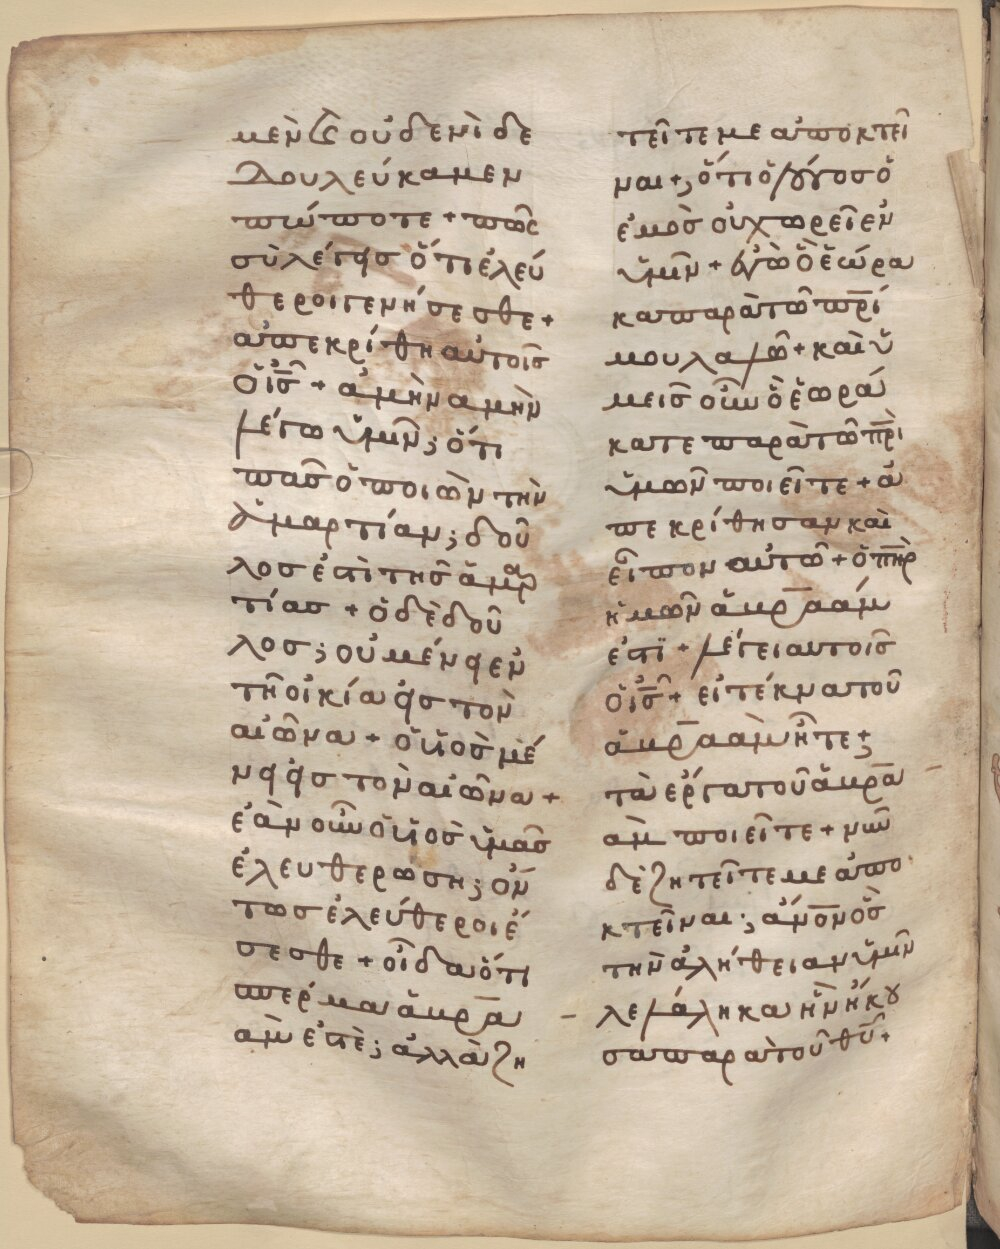 μὲν καὶ οὐδενὶ δε
δουλεύκαμεν
πώποτε + πῶς
σὺ λέγεις ὅτι ἐλεύ
θεροι γενήσεσθε +
ἀπεκρίθη αὐτοῖς
ὁ ις + ἀμὴν ἀμὴν
λέγω ὑμῖν; ὅτι
πᾶς ὁ ποιῶν τὴν
ἁμαρτίαν; δοῦ
λος ἐστὶ τῆς ἁμαρ
τίας + ὁ δὲ δοῦ
λος; οὐ μένει ἐν
τῆ οἰκία εἰς τὸν
αἰῶνα + ὁ υἱὸς μέ
νει εἰς τὸν αἰῶνα +
ἐὰν οὖν ὁ υἱὸς ὑμᾶς
ἐλευθερώση; ὄν
τως ἐλεύθεροι ἔ
σεσθε + οἶδα ὅτι
σπέρμα ἀβρα
άμ ἐστε; ἀλλὰ ζη
τεῖτέ με ἀποκτεῖ
ναι +; ὅτι ὁ λόγος ὁ
ἐμὸς οὐ χωρεῖ ἐν
ὑμῖν + ἐγὼ ὃ ἑώρα
κα παρὰ τῶ πρί
μου λαλῶ + καὶ ὑ
μεῖς οὖν ὃ ἑωρά
κατε παρὰ τῶ πρι
ὑμῶν ποιεῖτε + ἀ
πεκρίθησαν καὶ
εἶπον αὐτῶ + ὁ πηρ
ἡμῶν ἀβραάμ
ἐστι + λέγει αὐτοῖς
ὁ ις + εἰ τέκνα τοῦ
ἀβραὰμ ἦτε +;
τὰ ἔργα τοῦ ἀβρα
ὰμ ποιεῖτε + νῦν
δὲ ζητεῖτέ με ἀπο
κτεῖναι; ἄνον ὃς
τὴν ἀλήθειαν ὑμῖν
λελάληκα ἣν ἤκου
σα παρὰ τοῦ θυ +